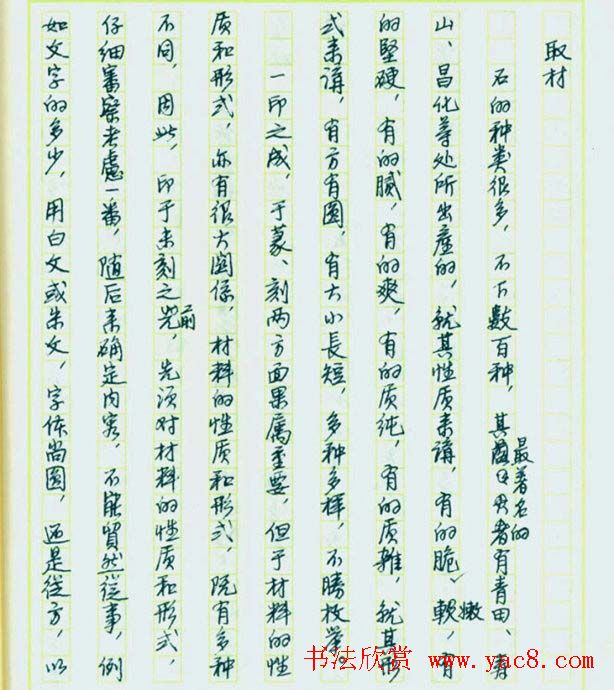 取材
石的种类很多，不下数百种，其最著名的者有青田、寿
山、昌化等处所出產的，就其性质来講，有的脆、嫩軟，有
的堅硬，有的腻，有的爽，有的质纯，有的质雜，就其形
式来講，有方有圆，有大小長短，多种多樣，不勝枚举。
一印之成，于篆、刻两方面果属重要，但于材料的性
质和形式，亦有很大関係，材料的性质和形式，既有多种
不同，因此，印于未刻之前，先须对材料的性质和形式，
仔细審察考慮一番，随后来确定内容，不能貿然從事，例
如文字的多少，用白文或朱文，字体尚圆，还是從方，以
书法欣赏 www.yac8.com